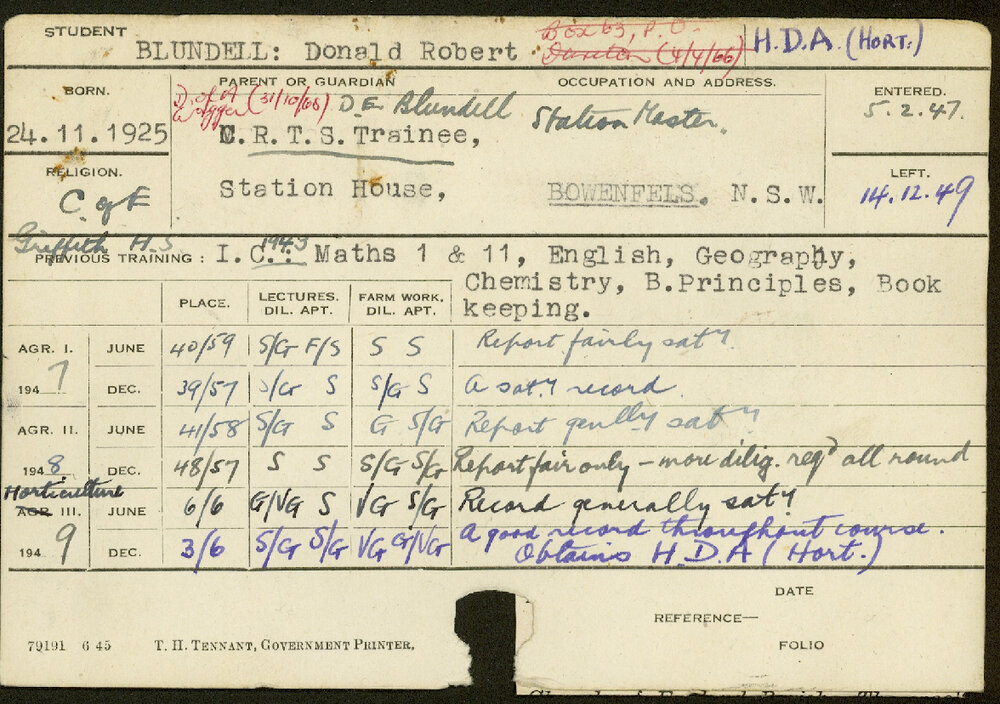 STUDENT BLUNDELL: Donald Robert Box 63, P.O. H.D.A. (HORT.)
(4/4/66)
BORN. PARENT OR GUARDIAN OCCUPATION AND ADDRESS. ENTERED.
D. of A (31/10/66) D E Blundell Station Master. 5.2.47.
Wagga
24.11.1925 C.R.T.S. Trainee,
RELIGION. LEFT.
C of E Station House, BOWENFELS. N.S.W. 14.12.49
Griffith H.S 1943
PREVIOUS TRAINING : I.C.: Maths 1 & 11, English, Geography,
Chemistry, B.Principles, Book
keeping.
PLACE. LECTURES. DIL. APT. FARM WORK. DIL. APT.
AGR. I. JUNE 40/59 S/G F/S S S Report fairly saty.
1947 DEC. 39/57 S/G S S/G S A saty record.
AGR. II. JUNE 41/58 S/G S G S/G Report genlly saty
1948 DEC. 48/57 S S S/G S/G Report fair only - more dilig. reqd all round
Horticulture
AGR III. JUNE 6/6 G/VG S VG S/G Record generally saty
1949 DEC. 3/6 S/G S/G VG G/VG A good record throughout course.
Obtains H.D.A (Hort.)
DATE
REFERENCE—
FOLIO
79191 6 45 T. H. TENNANT, GOVERNMENT PRINTER.